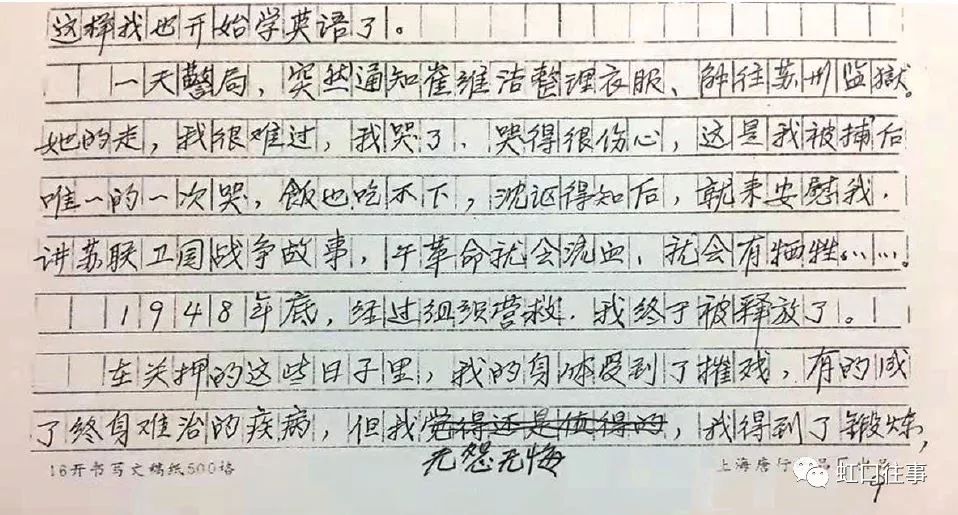 这样我也开始学英语了。
一天警局,突然通知崔维洁整理衣服、解往苏州监獄。
她的走,我很难过,我哭了、哭得很伤心,这是我被捕后
唯一的一次哭,飯也吃不下,沈讴得知后,就来安慰我.
讲苏联卫国战争故事,干革命就会流血、就会有牺牲……。
1948年底,经过组织营救.我终于被释放了。
在关押的这些日子里,我的身体受到了摧残,有的成
了终身难治的疾病,但我觉得还是值得的,我得到了锻炼,
无怨无悔
16开书写文稿纸500格
上海唐行
虹口往事